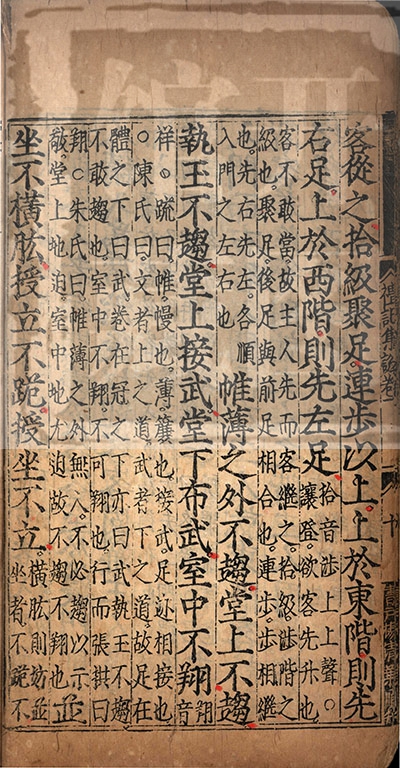 客從之拾級聚足連步以上上於東階則先
右足上於西階則先左足
拾音涉上上聲○
讓登欲客先升也
客不敢當故主人先而客繼之拾級涉階之
級也聚足後足與前足相合也連步步相繼
也先右先左各順
入門之左右也
帷薄之外不趨堂上不趨
執玉不趨堂上接武堂下布武室中不翔
翔
音
祥○疏曰帷幔也薄簾也接武足迹相接也
○陳氏曰文者上之道武者下之道故足在
體之下曰武卷在冠之下亦曰武執玉不趨
不敢趨也室中不翔不可翔也行而張拱曰
翔○朱氏曰帷薄之外無人不必趨以示
敬堂上地迫室中地尤迫故不趨不翔也
並
坐不橫肱授立不跪授坐不立
橫肱則妨並
坐者不跪不